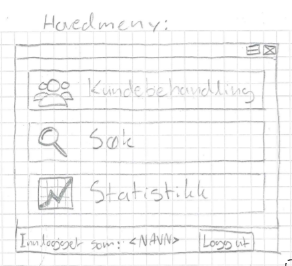 Hovedmeny:
Kundebehandling
Søk
Statistikk
Innlogget som: <NAVN> Logg ut